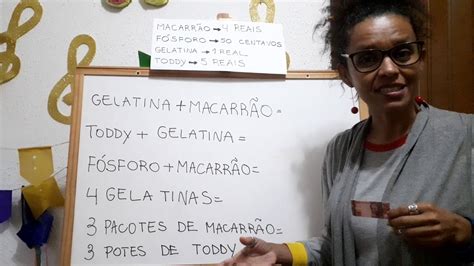 MACARRÃO → 4 REAIS
FÓSFORO → 50 CENTAVOS
GELATINA → 1 REAL
TODDY → 5 REAIS
GELATINA + MACARRÃO =
TODDY + GELATINA =
FÓSFORO + MACARRÃO =
4 GELATINAS =
3 PACOTES DE MACARRÃO =
3 POTES DE TODDY